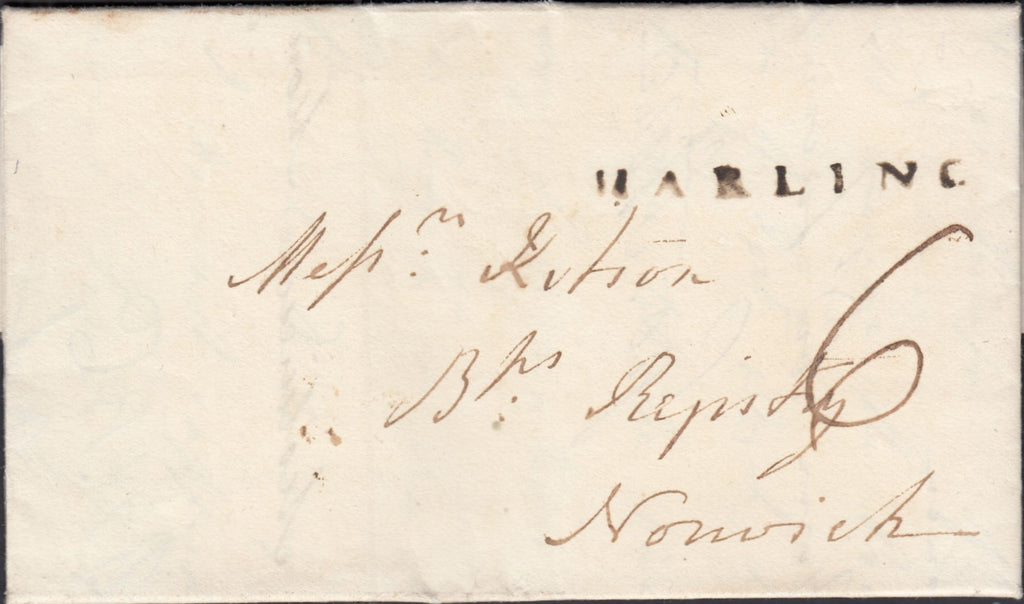 HARLING
Messrs. Kitson
6
Bps. Registry
Norwich